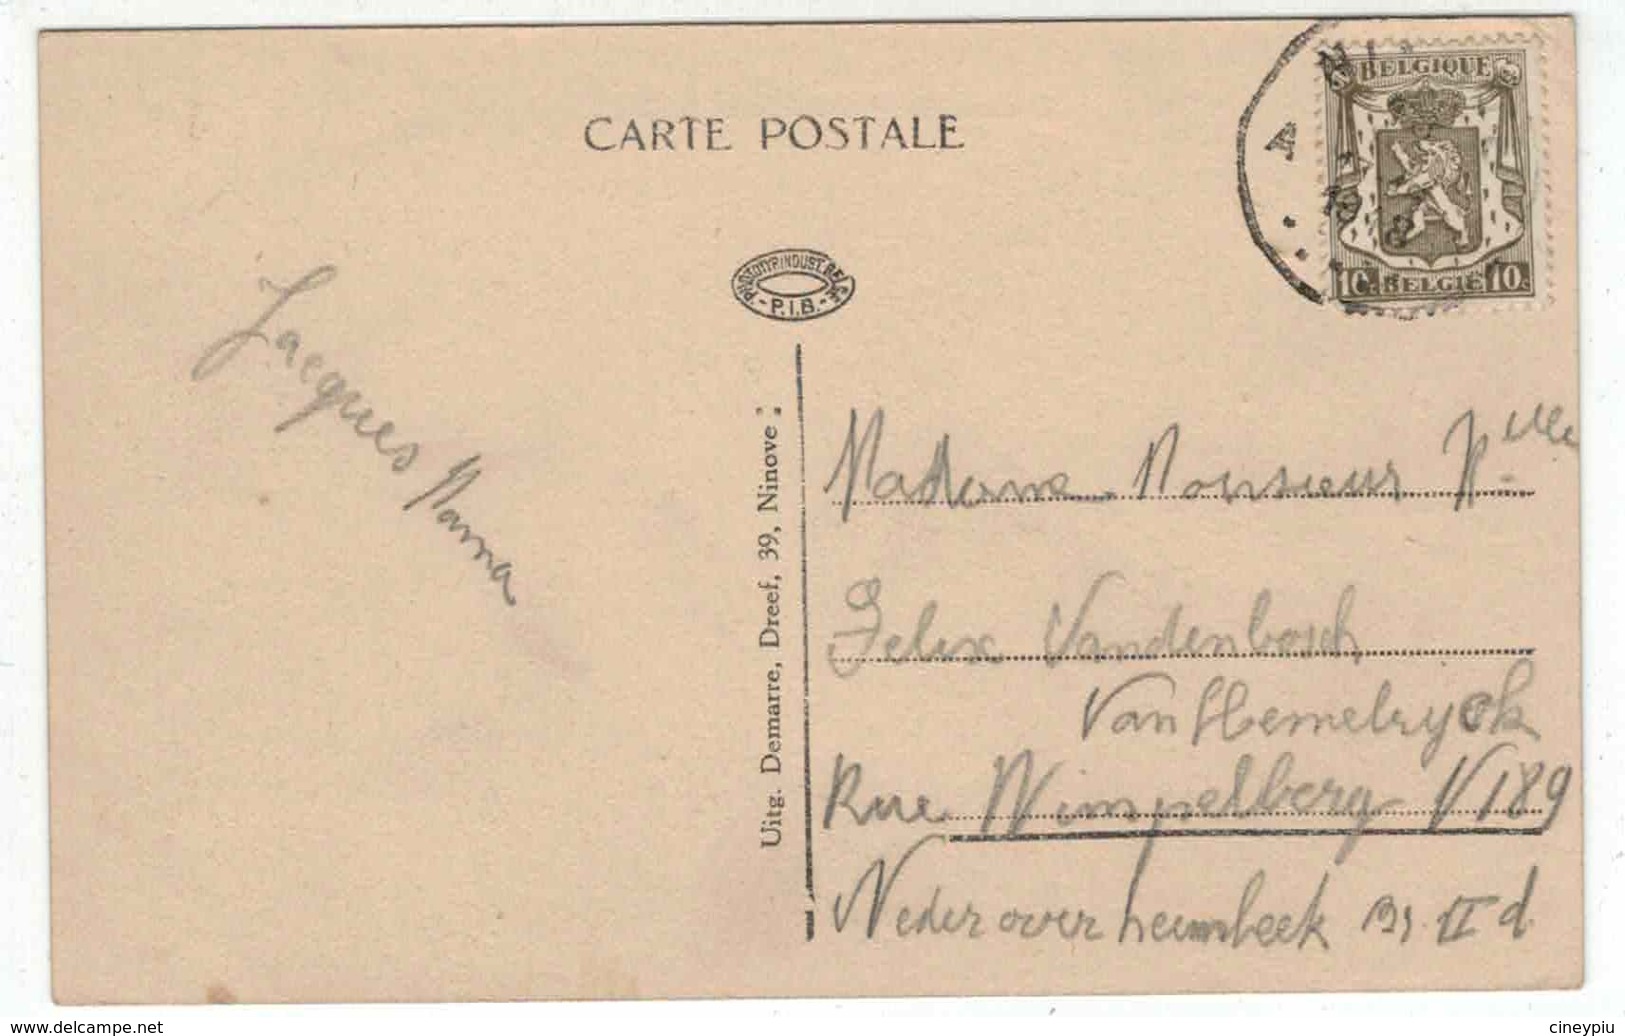 CARTE POSTALE
BELGIQUE
10c BELGIË 10c
PHOTOTYP. INDUST. BELGE
- P.I.B. -
Jacques Mama
Uitg. Demarre, Dreef, 39, Ninove :
Madame Monsieur Melle
Felix Vandenbosch
Van Hemelryck
Rue Wimpelberg N 189
Neder over heembeek Br. II d
www.delcampe.net
cineypiu